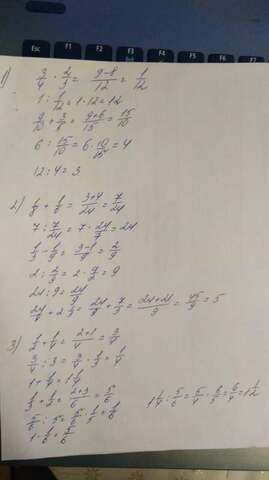 Esc F1 F2 F3 F4 F5 F6
1) 3/4 - 2/3 = (9-8)/12 = 1/12
1 : 1/12 = 1 · 12 = 12
9/10 + 3/5 = (9+6)/10 = 15/10
6 : 15/10 = 6 · 10/15 = 4
12 : 4 = 3
2) 1/8 + 1/6 = (3+4)/24 = 7/24
7 : 7/24 = 7 · 24/7 = 24
1/3 - 1/9 = (3-1)/9 = 2/9
2 : 2/9 = 2 · 9/2 = 9
24 : 9 = 24/9
3) 1/2 + 1/4 = (2+1)/4 = 3/4
3/4 : 3 = 3/4 · 1/3 = 1/4
1 + 1/4 = 1 1/4
1/3 + 1/2 = (2+3)/6 = 5/6
5/6 : 5 = 5/6 · 1/5 = 1/6
1 - 1/6 = 5/6
1 1/4 : 5/6 = 5/4 · 6/5 = 6/4 = 1 1/2